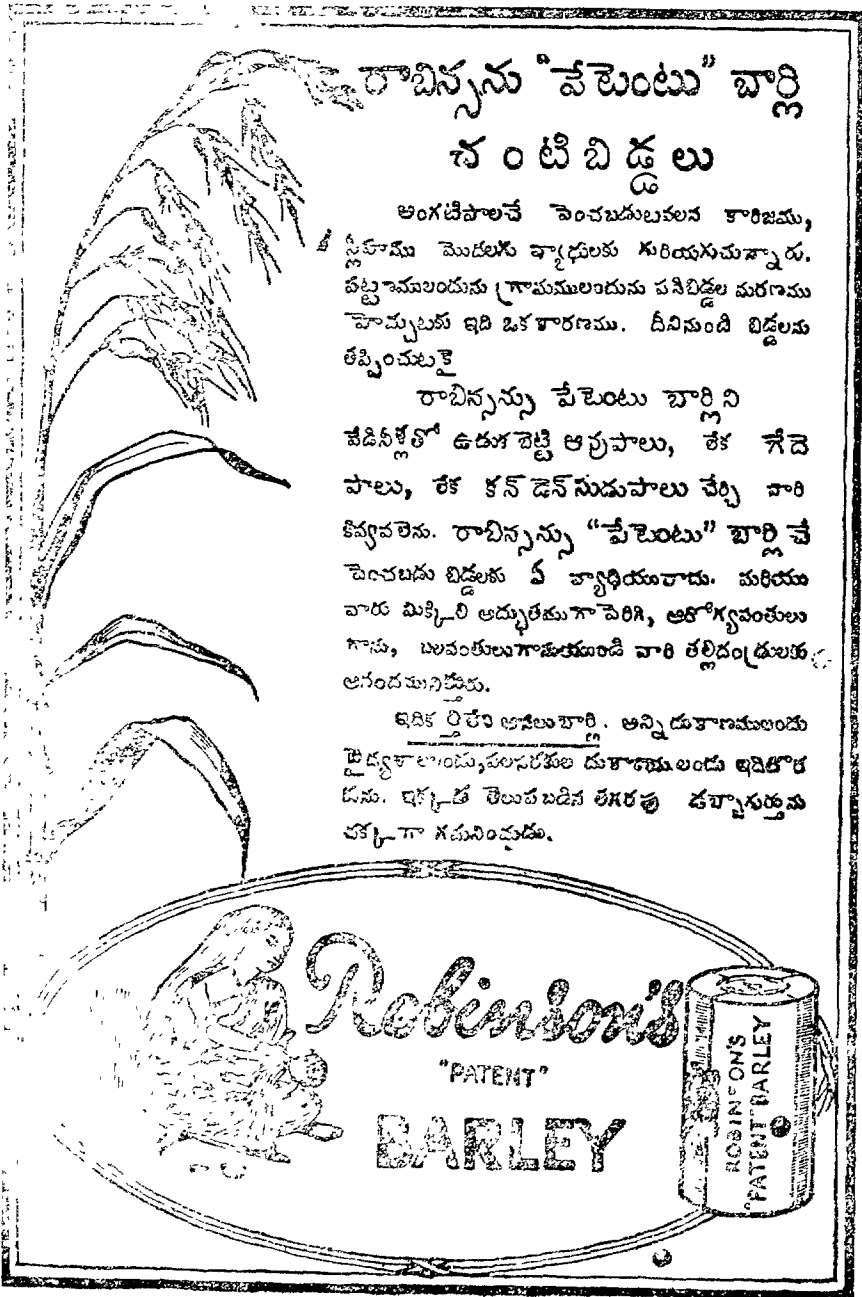 రాబిన్సను "పేటెంటు" బార్లి
చంటిబిడ్డలు
అంగటిపాలచే పెంచబడుటవలన కారిజము,
ప్లీహము మొదలగు వ్యాధులకు గురియగుచున్నారు.
పట్టణములందును గ్రామములందును పసిబిడ్డల మరణము
హెచ్చుటకు ఇది ఒక కారణము. దీనినుండి బిడ్డలను
తప్పించుటకై
రాబిన్సన్సు పేటెంటు బార్లిని
వేడినీళ్లతో ఉడుకబెట్టి ఆవుపాలు, లేక గేదె
పాలు, లేక కన్ డెన్ సుడుపాలు చేర్చి వారి
కివ్వవలెను. రాబిన్సన్సు "పేటెంటు" బార్లిచే
పెంచబడు బిడ్డలకు ఏ వ్యాధియురాదు. మరియు
వారు మిక్కిలి అద్భుతముగా పెరిగి, ఆరోగ్యవంతులు
గాను, బలవంతులుగానుయుండి వారి తల్లిదండ్రులకు
ఆనందమునిత్తురు.
ఇదికల్తిలేని అసలుబార్లి. అన్ని దుకాణములందు
వైద్యశాలలందు, పలసరకుల దుకాణములందు ఇదిదొర
కును. ఇక్కడ తెలుపబడిన తగరపు డబ్బాగుర్తును
చక్కగా గమనింపుడు.
Robinson's
"PATENT"
BARLEY
ROBINSON'S
"PATENT" BARLEY